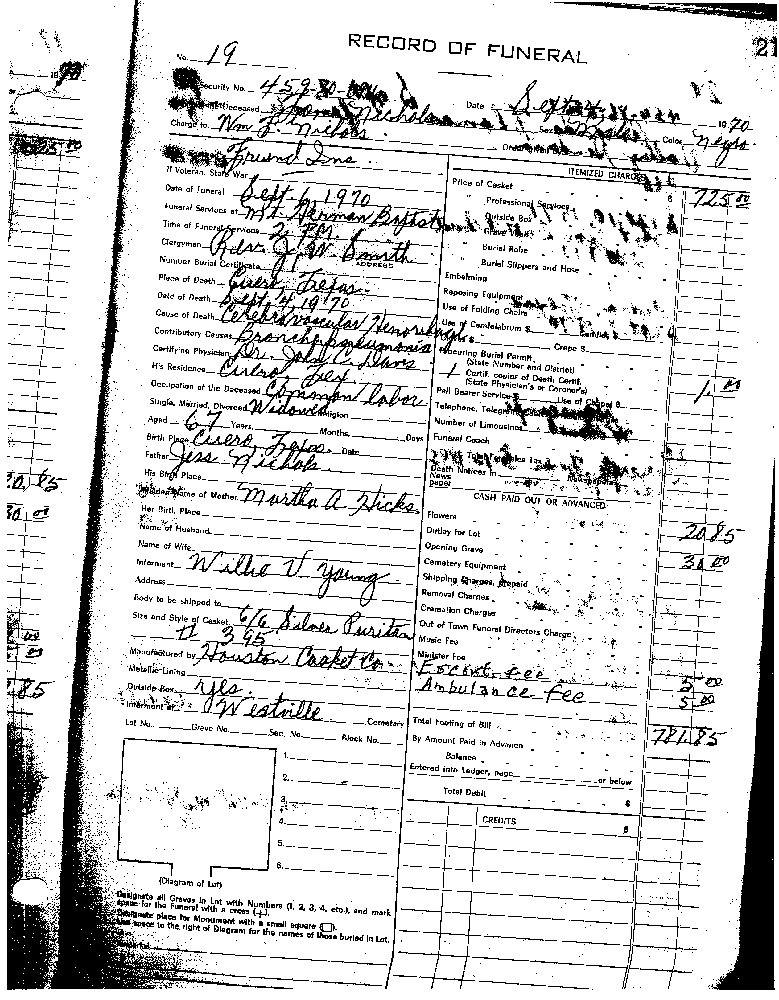 21
RECORD OF FUNERAL
No. 19
Security No. 459-80-
Date Sept 1970
Deceased Nichols
Charge to Wm F. Nichols Color Negro
Friend Ins.
If Veteran, State War
Date of Funeral Sept. 6, 1970
Funeral Services at Mt. Herman Baptist
Time of Funeral Services 2 PM
Clergyman Rev. J. W. Smith
ADDRESS
Number Burial Certificate
Place of Death Cuero, Texas
Date of Death Sept. 4 1970
Cause of Death Cerebravascular Hemorrhage
Contributory Causes Bronchopneumonia
Certifying Physician Dr. John C. Davis
His Residence Cuero, Tex.
Occupation of the Deceased Common labor
Single, Married, Divorced Widowed Religion
Aged 67 Years, Months, Days
Birth Place Cuero, Texas. Date
Father Jess Nichols
His Birth Place
Maiden Name of Mother Martha A. Hicks
Her Birth Place
Name of Husband
Name of Wife
Informant Willie V Young
Address
Body to be shipped to
Size and Style of Casket 6/6 Silver Puritan
# 395
Manufactured by Houston Casket Co.
Metallic Lining
Outside Box yes.
Interment at Westville Cemetery
Lot No. Grave No. Sec. No. Block No.
1.
2.
3.
4.
5.
6.
(Diagram of Lot)
Designate all Graves in Lot with Numbers (1, 2, 3, 4, etc.), and mark
space for the Funeral with a cross (+).
Designate place for Monument with a small square (□).
Use space to the right of Diagram for the names of those buried in Lot.
ITEMIZED CHARGES
Price of Casket $ 725 00
Professional Services
Outside Box
Grave Vault
Burial Robe
Burial Slippers and Hose
Embalming
Reposing Equipment
Use of Folding Chairs
Use of Candelabrum $
Crepe $
Securing Burial Permit
(State Number and District)
1 Certif. copies of Death Certif. 1. 00
(State Physician's or Coroner's)
Pall Bearer Service $ Use of Chapel $
Telephone,
Number of Limousines
Funeral Coach
Death Notices in
News
paper
CASH PAID OUT OR ADVANCED
Flowers
Outlay for Lot 20 85
Opening Grave
Cemetery Equipment 30 00
Shipping Charges, Prepaid
Removal Charges
Cremation Charges
Out of Town Funeral Directors Charge
Music Fee
Minister Fee
Escort. fee 5 00
Ambulance fee 5 00
Total footing of Bill 781.85
By Amount Paid in Advance
Balance
Entered into Ledger, page or below
Total Debit $
CREDITS $